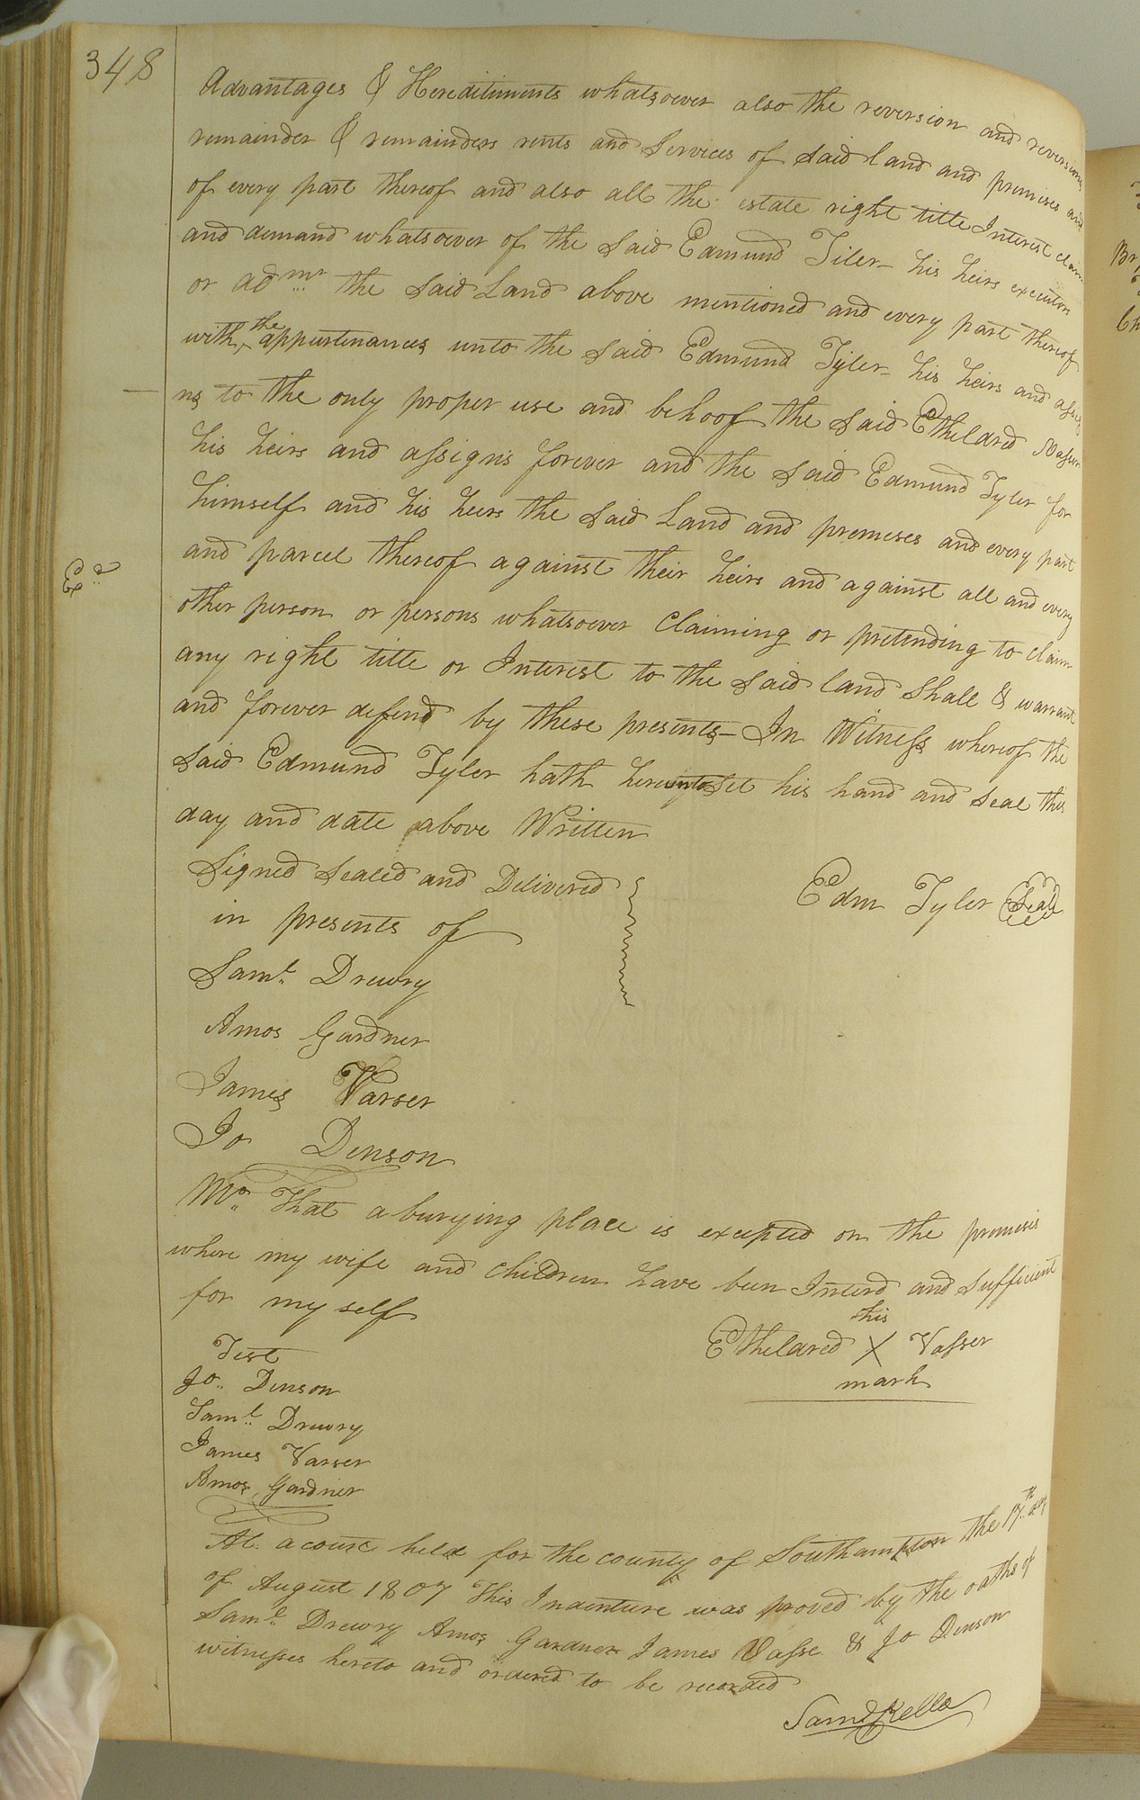 348
Advantages & Hereditiments whatsoever also the reversion and reversions
remainder & remainders rents and Services of Said land and premises and
of every part thereof and also all the estate right title Interest claim
and demand whatsoever of the Said Edmund Tiler his heirs executors
or admr the Said Land above mentioned and every part thereof
with the appurtenances unto the Said Edmund Tyler his heirs and assig
ns to the only proper use and behoof the Said Etheldred Vasser
his heirs and assigns forever and the Said Edmund Tyler for
himself and his heirs the Said Land and premeses and every part
and parcel thereof against their heirs and against all and every
other person or persons whatsoever Claiming or pretending to claim
any right title or Interest to the Said land Shall & warrant
and forever defend by these presents - In Witness whereof the
Said Edmund Tyler hath hereunto Set his hand and Seal this
day and date above Written
Signed Sealed and Delivered
in presents of
Edm Tyler Seal
Saml Drewry
Amos Gardner
James Varser
Jo Denson
Mo That a burying place is excepted on the premisis
where my wife and children have been Interd and Sufficient
for my self
his
Etheldred X Vasser
mark
Test
Jo Denson
Saml Drewry
James Varser
Amos Gardner
At a court held for the county of Southampton the 17th day
of August 1807 This Indenture was proved by the oaths of
Saml Drewry Amos Gardner James Vasse & Jo Denson
witnesses hereto and ordered to be recorded
Saml Kello